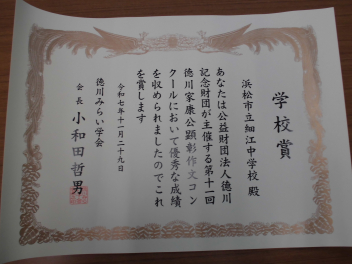 学校賞
浜松市立細江中学校 殿
あなたは公益財団法人徳川
記念財団が主催する第十一回
徳川家康公顕彰作文コン
クールにおいて優秀な成績
を収められましたのでこれ
を賞します
令和七年十一月二十九日
徳川みらい学会
会長 小和田哲男